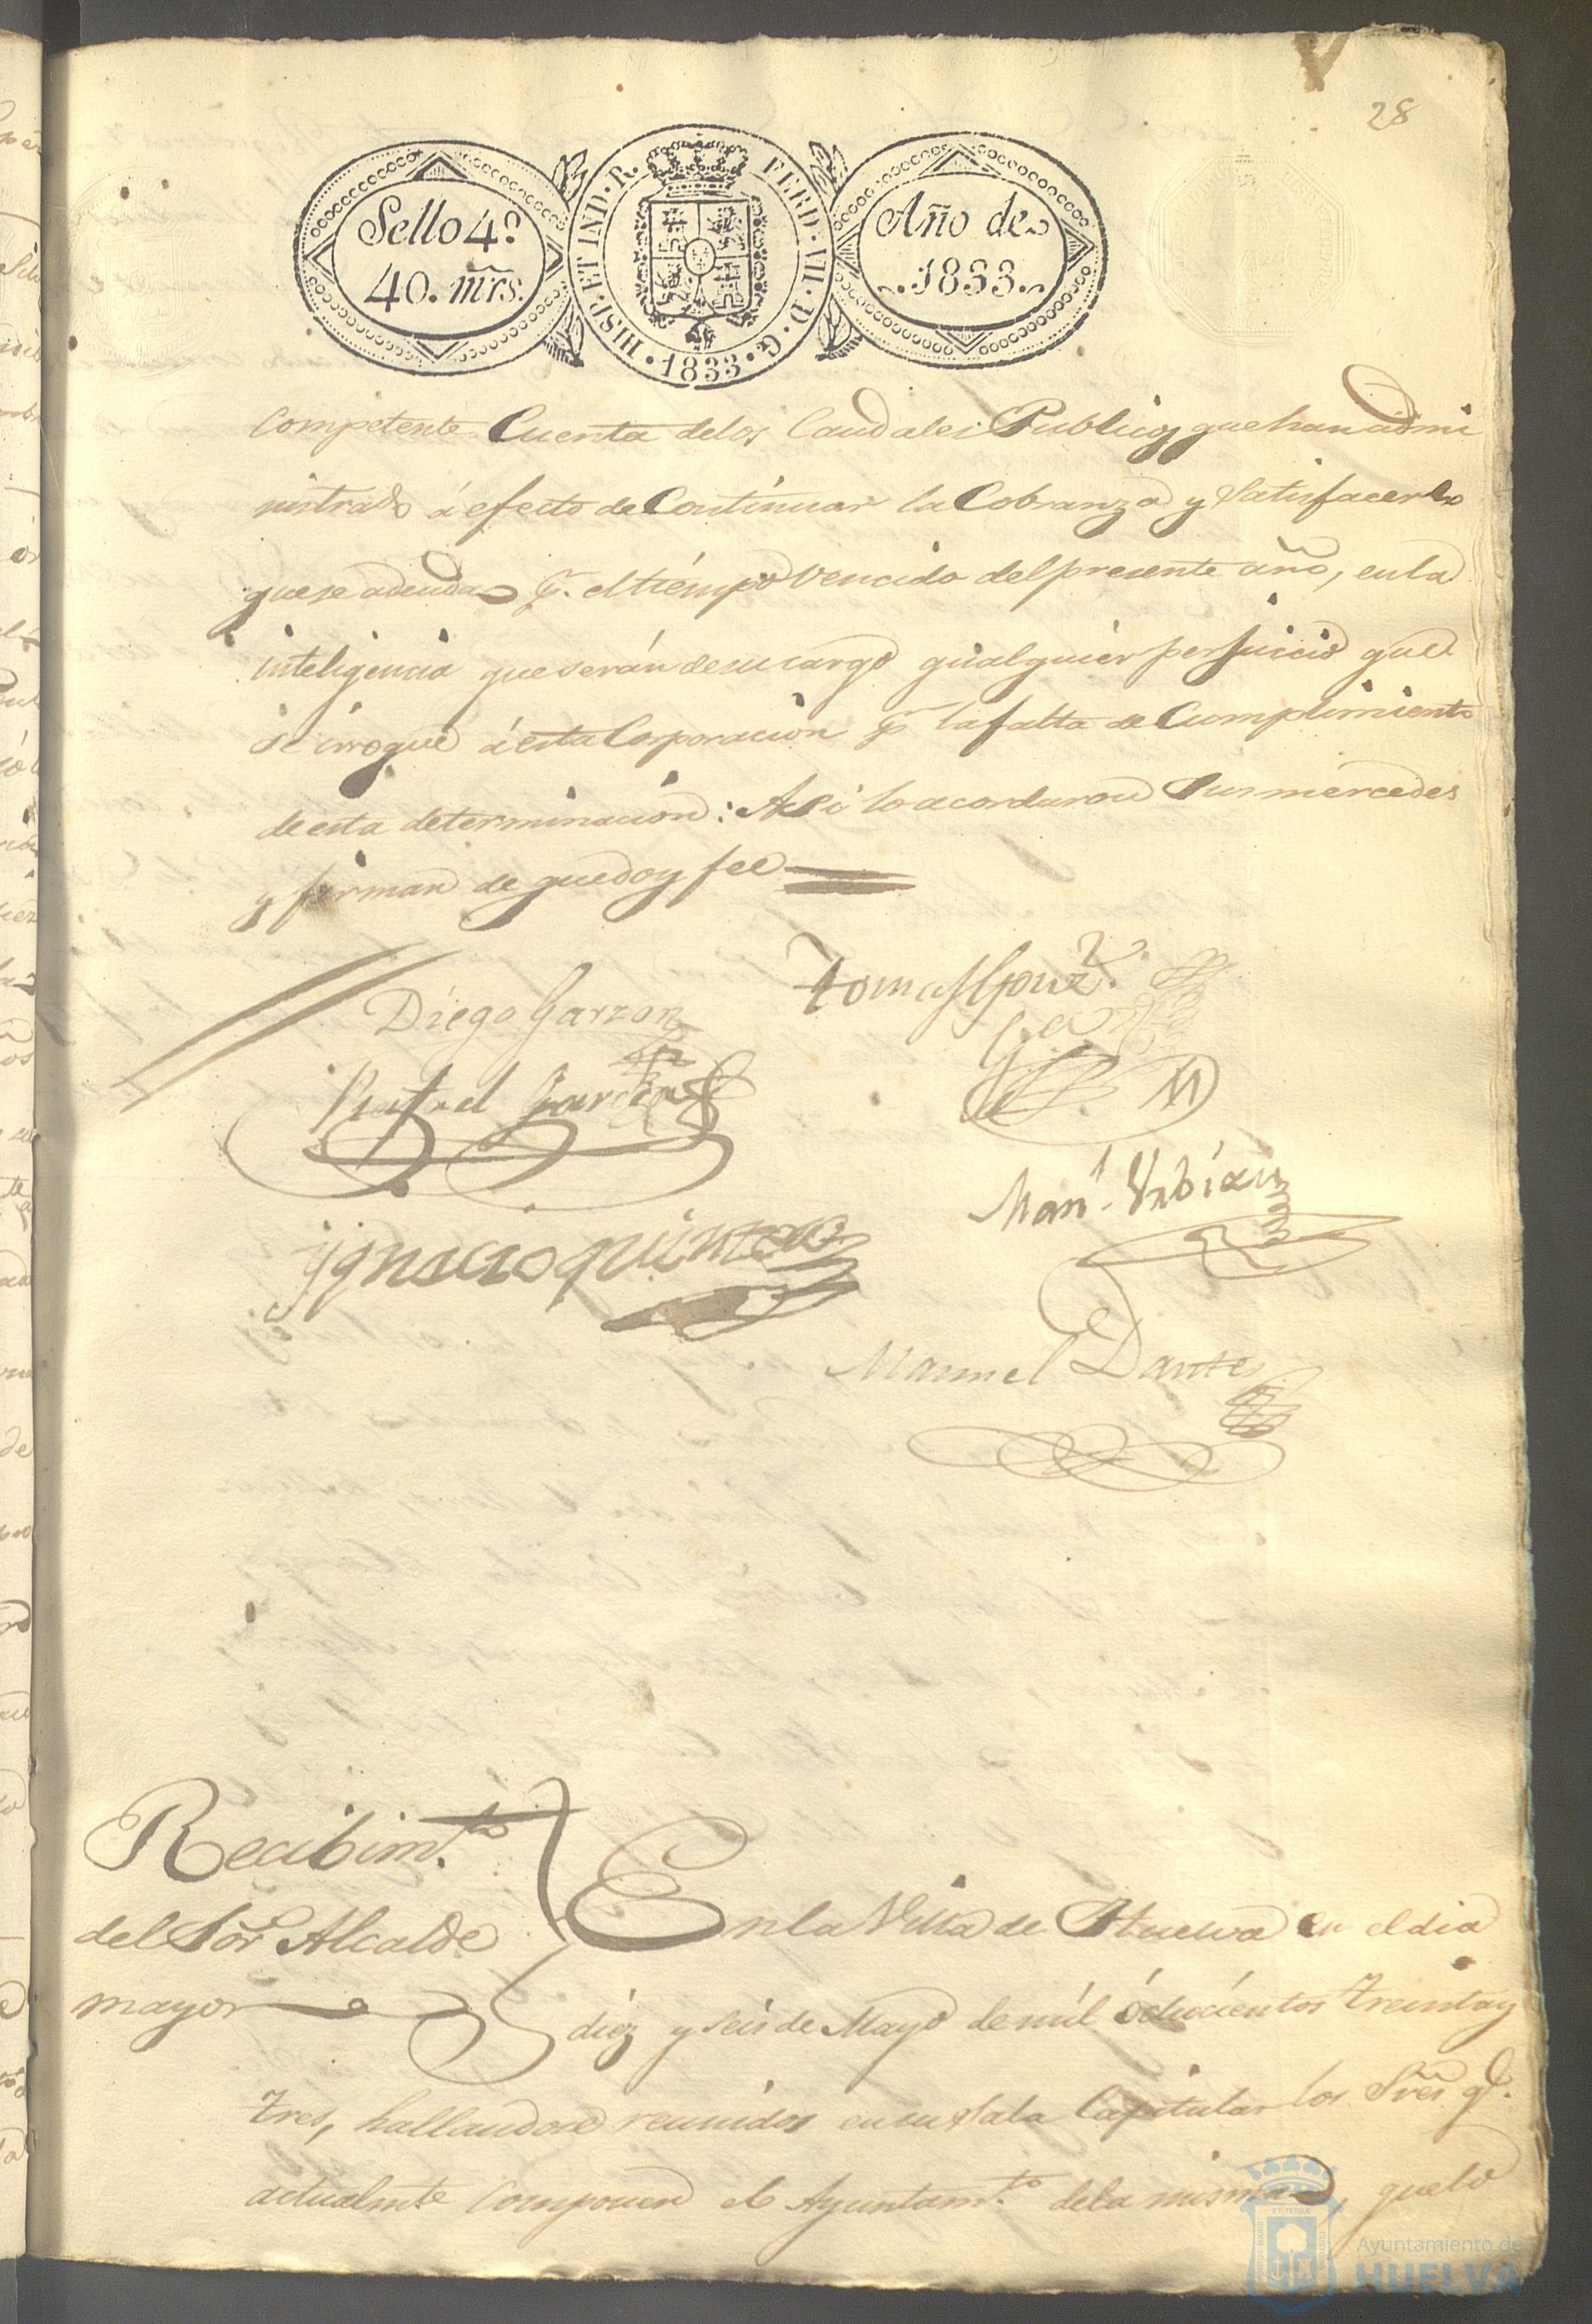 28
Sello 4º
40. mrs.
HISP. ET IND. R. FERD. VII. D. G. 1833.
Año de
1833.
Competente Cuenta delos Caudales Publicos que han admi
nistrado á efecto de Continuar la Cobranza y Satisfacer lo
que se adeuda p.r el tiempo Vencido del presente año, en la
inteligencia que serán de su cargo qualquier perjuicio que
se irrogue á esta Corporacion p.r la falta de Cumplimiento
de esta determinacion: Asi lo acordaron Sus mercedes
y firman de que doy fee
Diego Garzon
Tomas Gonz.z
Rafael Garcia
Man.l Urbian
Ygnacio quintero
Manuel Dante
Recibim.to
del Sor Alcalde
mayor
En la Villa de Huelva en el dia
diez y seis de Mayo de mil ochocientos treinta y
tres, hallandose reunidos en su Sala Capitular los Sres q.e
actualmte componen el Ayuntam.to dela misma, que lo
Ayuntamiento de
HUELVA